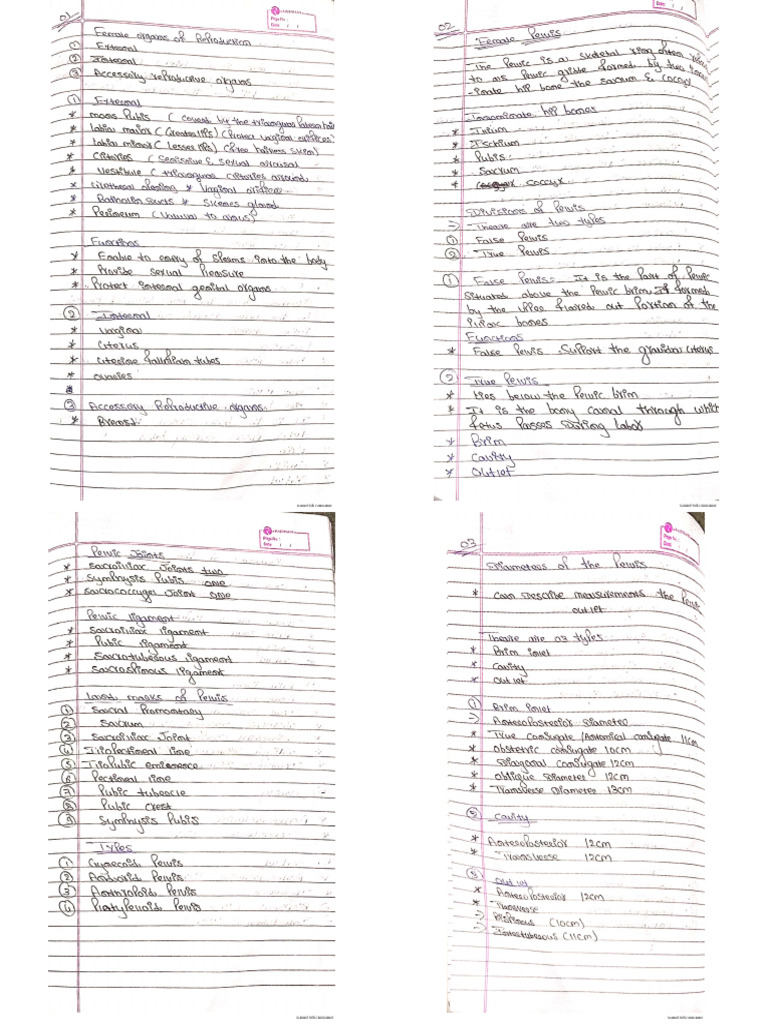 01
Female organs of Reproduction
① External
② Internal
③ Accessory reproductive organs
① External
* mons Pubis ( covered by the triangular Pubesen hair
* labia majora (Greater lips) (Protect vaginal orifices)
* labia minora ( Lesser lips) (free hairness skin)
* Clitories ( Sensitive & sexual arousal
* Vestibule ( triangular clitories around
* Urethral opening * Vaginal orifice
* Bartholin ducts * Skenes gland
* Perineum ( Vaginal to anus)
Functions
* Enable to entry of sperms into the body
* Provide sexual Pleasure
* Protect internal genital organs
② Internal
* vaginal
* Uterus
* Uterine fallopian tubes
* ovaries
*
③ Accessory Reproductive organs
* Breast
02
Female Pelvis
The Pelvic is a skeletal ring often
to as Pelvic girdle formed by two
-inate hip bone the sacrum & Coccyx
Innominate hip bones
* Ilium
* Ischium
* Pubis
* Sacrum
* coccyx
Divisions of Pelvis
⇒ There are two types
① False Pelvis
② True Pelvis
① False Pelvis:- It is the Part of Pelvic
situated above the Pelvic brim It formed
by the upper flared out Portion of the
iliac bones
Functions
* False Pelvis Support the gravidu uterus
② True Pelvis
* lies below the Pelvic brim
* It is the bony canal through which
fetus Passes During labor
* Brim
* Cavity
* outlet
Pelvic Joints
* Sacroiliac Joints two
* Symphysis Pubis one
* Sacrococcyger Joint one
Pelvic ligament
* Sacroiliac ligament
* Pubic ligament
* Sacrotuberous ligament
* Sacrospinous ligament
Land marks of Pelvis
① Sacral Promontary
② Sacrum
③ Sacroiliac Joint
④ Iliopectineal line
⑤ Iliopubic eminence
⑥ Pectineal line
⑦ Pubic tubercle
⑧ Pubic crest
⑨ Symphysis Pubis
Types
① Gynecoid Pelvis
② Android Pelvis
③ Anthropoid Pelvis
④ Platypelloid Pelvis
03
Diameters of the Pelvis
* Can Describe measurements the Pelvic
outlet
There are 03 types
* Brim inlet
* Cavity
* outlet
① Brim inlet
⇒ Anteroposterior Diameter
* True Conjugate /Anatomical conjugate 11cm
* obstetric conjugate 10cm
* Diagonal conjugate 12cm
* oblique Diameter 12cm
* Transverse Diameter 13cm
② Cavity
* Anteroposterior 12cm
* Transverse 12cm
③ outlet
* Anteroposterior 12cm
* Transverse
⇒ Bispinous (10cm)
⇒ Intertuberous (11cm)